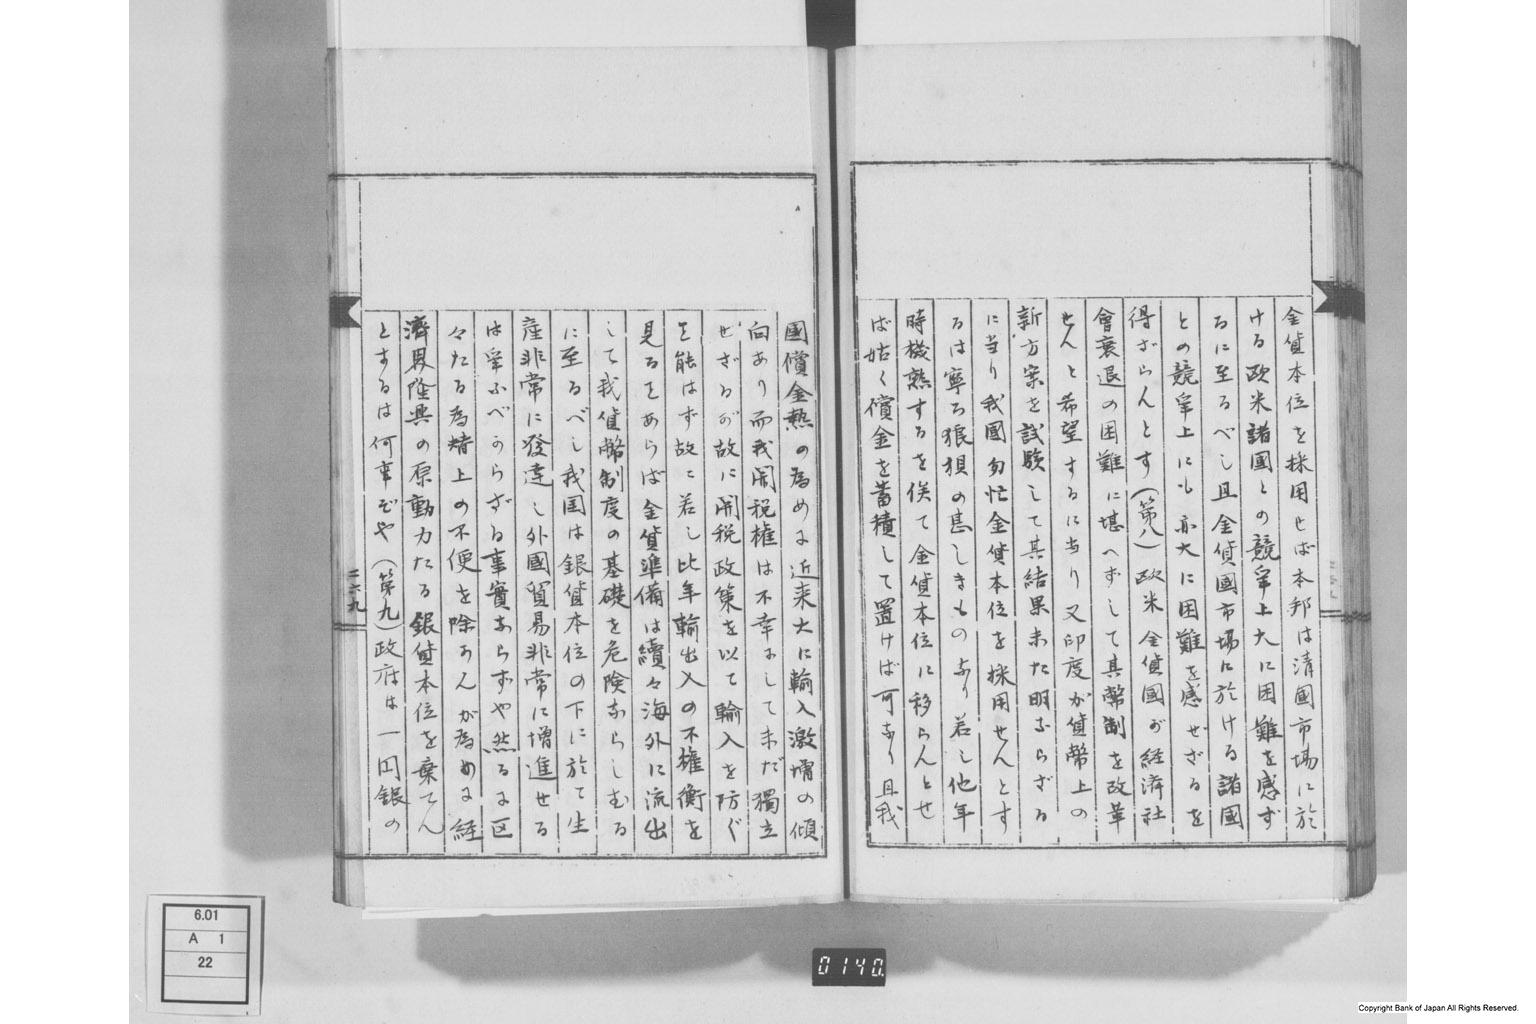 金貨本位を採用せば本邦は清國市場に於
ける欧米諸國との競爭上大に困難を感ず
るに至るべし且金貨國市場に於ける諸國
との競爭上にも亦大に困難を感せざるを
得ざらんとす(第八)欧米金貨國が経済社
會衰退の困難に堪へずして其幣制を改革
せんと希望するに当り又印度が貨幣上の
新方案を試験して其結果未た明ならざる
に当り我國匆忙金貨本位を採用せんとす
るは寧ろ狼狽の甚しきものなり若し他年
時機熟するを俟て金貨本位に移らんとせ
ば姑く償金を蓄積して置けば可なり且我
國償金熱の為めに近来大に輸入激増の傾
向あり而我関税権は不幸にして未だ獨立
せざるが故に関税政策を以て輸入を防ぐ
を能はず故に若し比年輸出入の不権衡を
見るをあらば金貨準備は續々海外に流出
して我貨幣制度の基礎を危険ならしむる
に至るべし我国は銀貨本位の下に於て生
産非常に發達し外國貿易非常に増進せる
は爭ふべからざる事實ならずや然るに区
々たる為替上の不便を除かんが為めに経
濟界隆興の原動力たる銀貨本位を棄てん
とするは何事ぞや(第九)政府は一円銀の
二六九
6.01
A 1
22
0140
Copyright Bank of Japan All Rights Reserved.